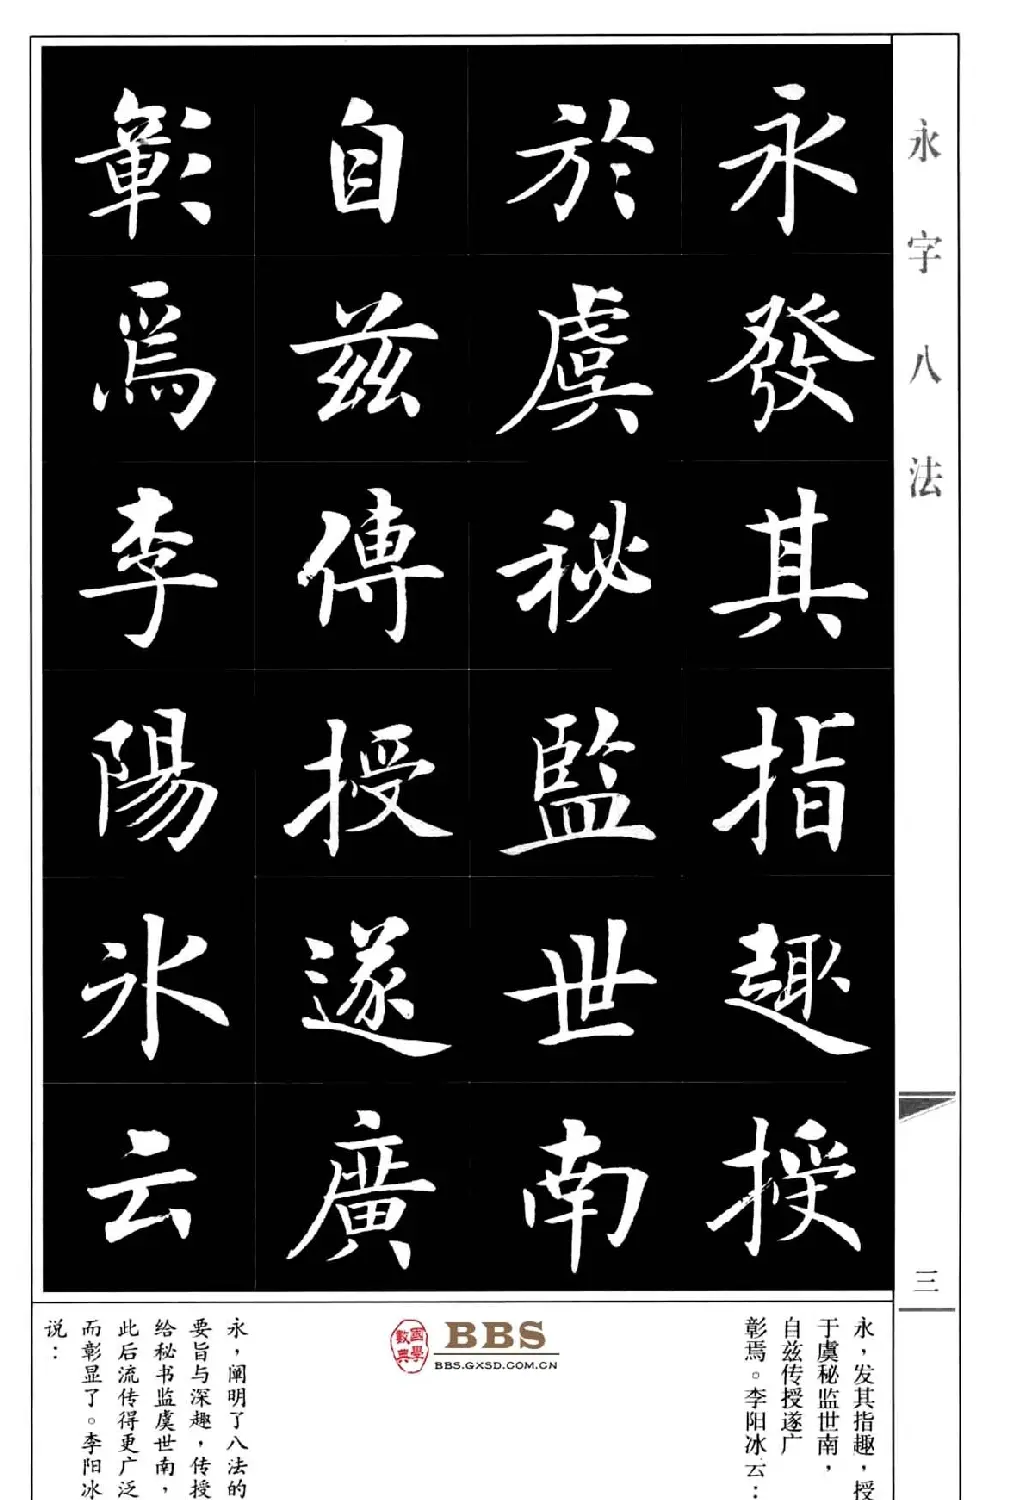 永字八法
三
永發其指趣授
於虞秘監世南
自兹傳授遂廣
彰焉李陽冰云
永，发其指趣，授
于虞秘监世南，
自兹传授遂广
彰焉。李阳冰云：
國學數典
BBS
BBS.GXSD.COM.CN
永，阐明了八法的
要旨与深趣，传授
给秘书监虞世南，
此后流传得更广泛
而彰显了。李阳冰
说：